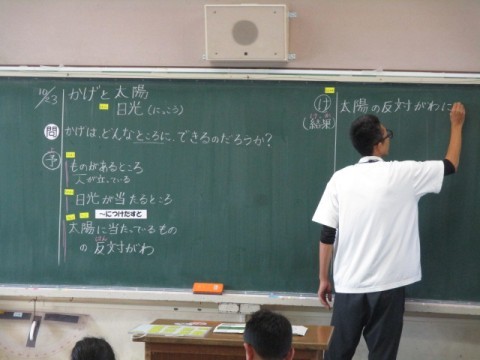 10/23
かげと太陽
日光(にっこう)
問 かげは、どんなところに、できるのだろうか?
予
ものがあるところ
人が立っている
日光が当たるところ
~につけたすと
太陽に当たっているもの
の反対がわ
け
(結果)
太陽の反対がわに